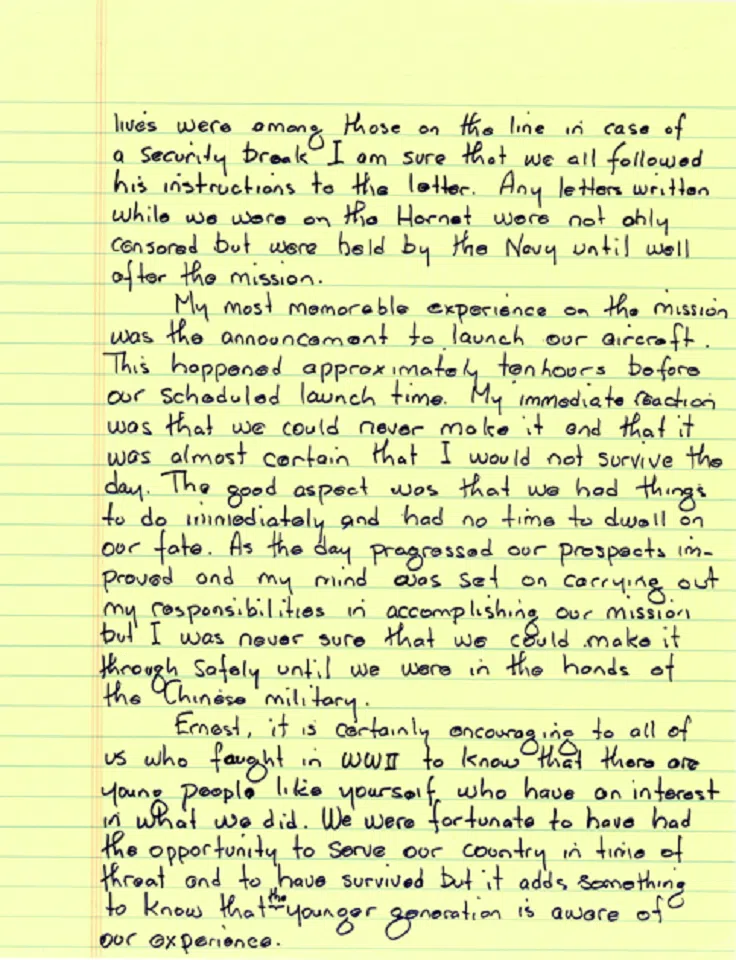 lives were among those on the line in case of
a security break I am sure that we all followed
his instructions to the letter. Any letters written
while we were on the Hornet were not only
censored but were held by the Navy until well
after the mission.
My most memorable experience on the mission
was the announcement to launch our aircraft.
This happened approximately ten hours before
our scheduled launch time. My immediate reaction
was that we could never make it and that it
was almost certain that I would not survive the
day. The good aspect was that we had things
to do immediately and had no time to dwell on
our fate. As the day progressed our prospects im-
proved and my mind was set on carrying out
my responsibilities in accomplishing our mission
but I was never sure that we could make it
through safely until we were in the hands of
the Chinese military.
Ernest, it is certainly encouraging to all of
us who fought in WWII to know that there are
young people like yourself who have an interest
in what we did. We were fortunate to have had
the opportunity to serve our country in time of
threat and to have survived but it adds something
to know that the younger generation is aware of
our experience.